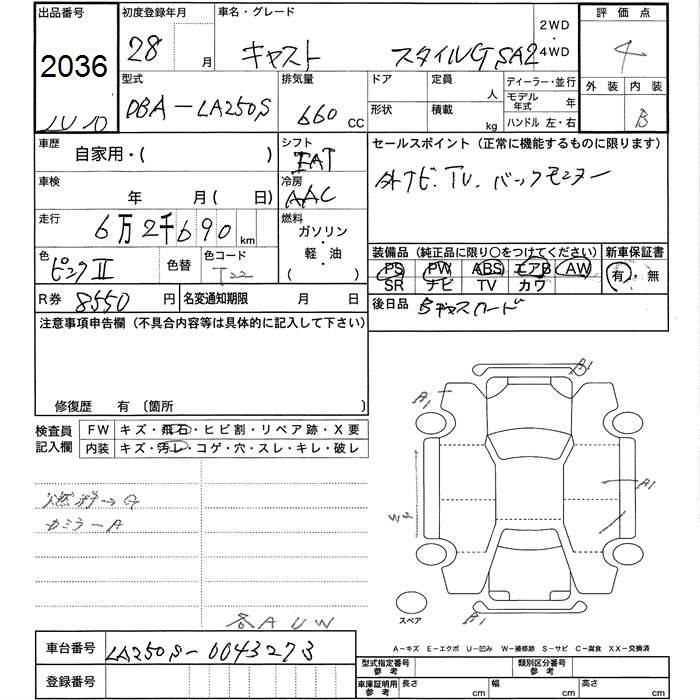 出品番号
2036
初度登録年月
28
月
車名・グレード
キャスト スタイルG SA2
2WD
・
4WD
評価点
4
型式
DBA-LA250S
排気量
660 CC
ドア
形状
定員
人
積載
kg
ディーラー・並行
モデル年式
年
ハンドル 左・右
外装
内装
B
車歴
自家用・( )
車検
年 月( 日)
走行
6万2千690 km
色
ピンクII
色替
色コード
T22
シフト
FAT
冷房
AAC
燃料
ガソリン
・
軽・油
( )
R券
8550 円
名変通知期限 月 日
セールスポイント(正常に機能するものに限ります)
外ナビ.TV.バックモニター
装備品(純正品に限り○をつけてください)
PS PW ABS エアB AW
SR ナビ TV カワ
新車保証書
有・無
後日品
注意事項申告欄(不具合内容等は具体的に記入して下さい)
修復歴 有〔箇所 〕
検査員
記入欄
FW キズ・飛石・ヒビ割・リペア跡・X要
内装 キズ・汚レ・コゲ・穴・スレ・キレ・破レ
燃料→G
カミラーA
各AUW
A1
B1
A1
W3
B1
スペア
A-キズ E-エクボ U-凹み W-補修跡 S-サビ C-腐食 XX-交換済
車台番号
LA250S-0043273
登録番号
型式指定番号
参考
類別区分番号
参考
車庫証明用
参考
長さ cm
幅 cm
高さ cm